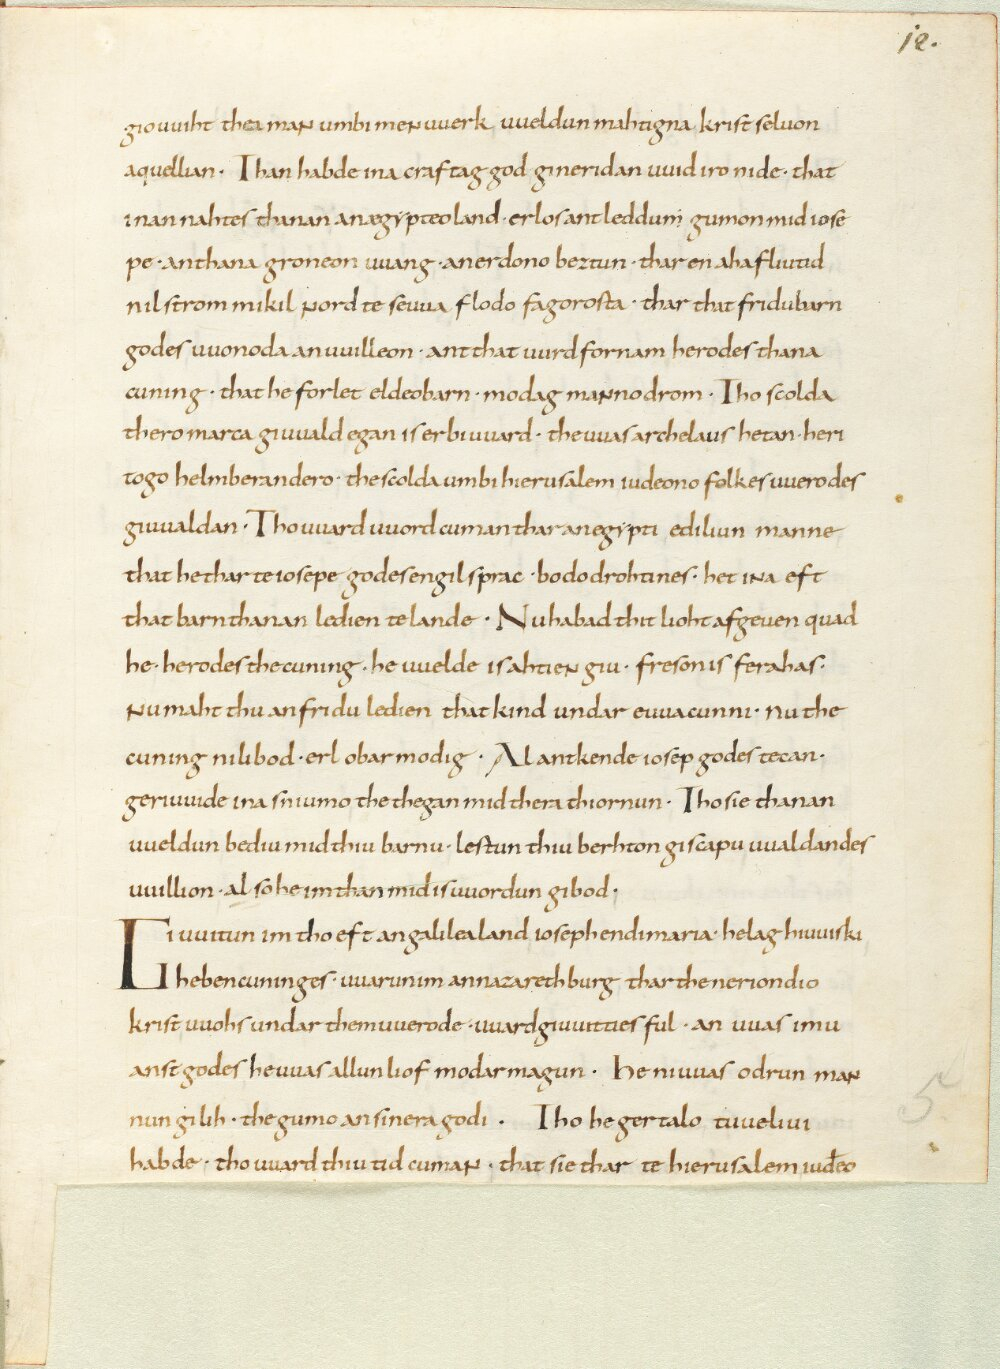 12.
giouuiht thea man umbi menuuerk uueldun mahtigna krist seluon
aquellian · Than habde ina craftag god gineridan uuid iro nide · that
inan nahtes thanan an ægypteo land · erlos antleddun gumon mid iose
pe · an thana groneon uuang · an erdono beztun · thar en aha fliutid
nil strom mikil nord te seuua flodo fagorosta · thar that fridubarn
godes uuonoda an uuilleon · ant that uurd fornam herodes thana
cuning · that he forlet eldeo barn · modag manno drom · Tho scolda
thero marca giuuald egan is erbiuuard · the uuas archelaus hetan · heri
togo helmberandero · the scolda umbi hierusalem iudeono folkes uuerodes
giuualdan · Tho uuard uuord cuman thar an egypti ediliun manne
that he thar te iosepe godes engil sprac · bodo drohtines · het ina eft
that barn thanan ledien te lande · Nu habad thit lioht afgeuen quad
he · herodes the cuning · he uuelde is ahtien giu · freson is ferahas ·
nu maht thu an fridu ledien that kind undar euua cunni · nu the
cuning ni libod · erl obarmodig · Al antkende iosep godes tecan ·
geriuuide ina sniumo the thegan mid thera thiornun · Tho sie thanan
uueldun bediu mid thiu barnu · lestun thiu berhton giscapu uualdandes
uuillion · al so he im than mid is uuordun gibod ;
Giuuitun im tho eft an galilealand ioseph endi maria · helag hiuuiski
hebencuninges · uuarun im an nazareth burg thar the neriondio
krist uuohs undar them uuerode · uuard giuuitties ful · an uuas imu
anst godes he uuas allun liof modarmagun · He ni uuas odrun man
nun gilih · the gumo an sinera godi · Tho he gertalo tuueliui
habde · tho uuard thiu tid cuman · that sie thar te hierusalem iudeo
5